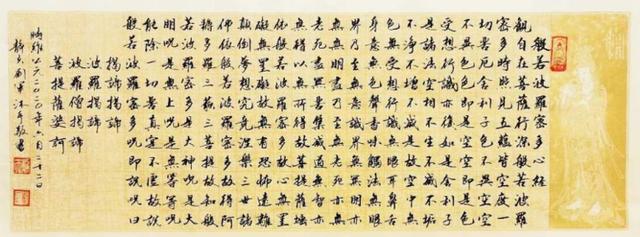 般若波羅密多心經
觀自在菩薩行深般若波羅
密多時照見五蘊皆空度一
切苦厄舍利子色不異空空
不異色色即是空空即是色
受想行識亦復如是舍利子
是諸法空相不生不滅不垢
不淨不增不減是故空中無
色無受想行識無眼耳鼻舌
身意無色聲香味觸法無眼
界乃至無意識界無無明亦
無無明盡乃至無老死亦無
老死盡無苦集滅道無智亦
無得以無所得故菩提薩埵
依般若波羅密多故心無罣
礙無罣礙故無有恐怖遠離
顛倒夢想究竟涅槃三世諸
佛依般若波羅密多故得阿
耨多羅三藐三菩提故知
般若波羅密多是大神咒是大
明咒是無上咒是無等等咒
能除一切苦真實不虛故說
般若波羅密多咒即說咒曰
揭諦揭諦
波羅揭諦
波羅僧揭諦
菩提薩婆訶
時維公元二〇二〇年六月二十二日
劉軍沐手敬書